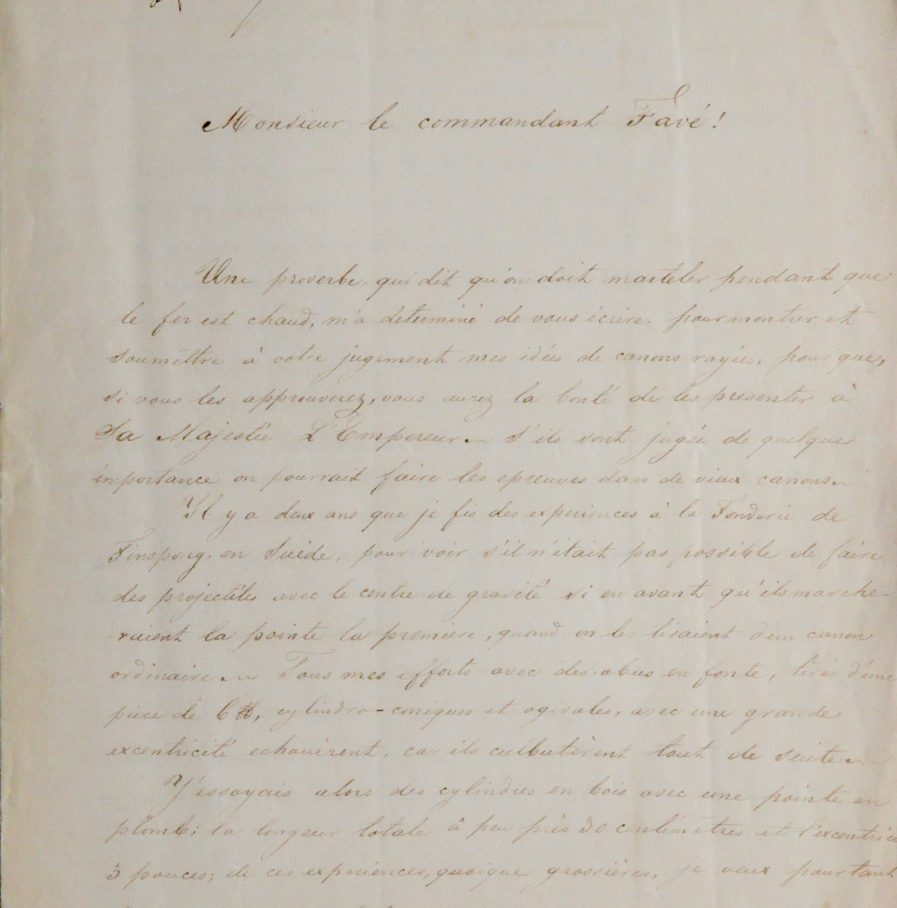 Monsieur le commandant Favé!
Une proverbe, qui dit qu'on doit marteler pendant que
le fer est chaud, m'a determiné de vous écrire, pour montrer et
soumettre à votre jugement mes idées de canons rayées, pour que,
si vous les approuverez, vous aurez la bonté de les presenter à
Sa Majestée L'Empereur. S'ils sont jugées de quelque
importance on pourrait faire les epreuves dans de vieux canons.
Il y a deux ans que je fis des experiences à la Fonderie de
Finspong, en Suède, pour voir s'il n'était pas possible de faire
des projectiles avec le centre de gravité si en avant qu'ils marche-
-raient la pointe la premiere, quand on les tiraient d'un canon
ordinaire. Tous mes efforts avec des obus en fonte, tirés d'une
pièce de 6 ℔, cylindro-coniques et ogivales, avec une grande
excentricité echouèrent, car ils culbutèrent tout de suite.
J'essayais alors des cylindres en bois avec une pointe en
plomb; la longeur totale à peu près 30 centimètres et l'excentrici
3 pouces; de ces experiences, quoique grossières, je veux pourtant